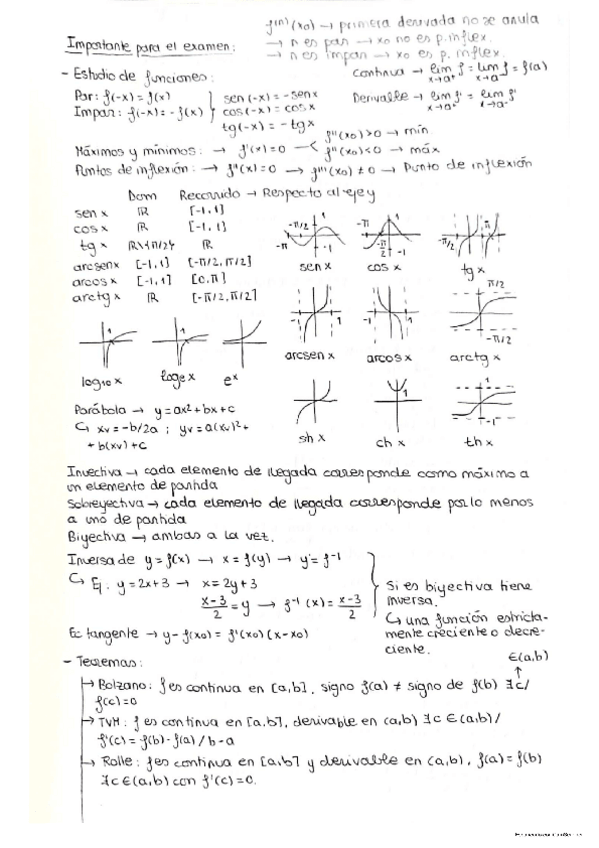 f⁽ⁿ⁾(x₀) → primera derivada no se anula
Importante para el examen:
→ n es par → x₀ no es p. inflex.
→ n es impar → x₀ es p. inflex.
- Estudio de funciones:
Continua → lim x→a⁺ f = lim x→a⁻ f = f(a)
Par: f(-x) = f(x)
Impar: f(-x) = - f(x)
sen(-x) = -senx
cos(-x) = cosx
tg(-x) = -tgx
Derivable → lim x→a⁺ f' = lim x→a⁻ f'
Máximos y mínimos: → f'(x) = 0
f''(x₀) > 0 → mín
f''(x₀) < 0 → máx
Puntos de inflexión: → f''(x) = 0 → f'''(x₀) ≠ 0 → Punto de inflexión
Dom Recorrido → Respecto al eje y
sen x ℝ [-1, 1]
cos x ℝ [-1, 1]
tg x ℝ\{π/2} ℝ
arcsenx [-1, 1] [-π/2, π/2]
arcos x [-1, 1] [0, π]
arctg x ℝ [-π/2, π/2]
-π/2 1 -π -1
sen x
-π 1 -π/2 -1
cos x
-π/2 π/2
tg x
-1 1
arcsen x
-1 1
arcos x
π/2 -π/2
arctg x
1
log₁₀ x
1
logₑ x
eˣ
sh x
1
ch x
1 -1
th x
Parábola → y = ax² + bx + c
↳ xᵥ = -b/2a ; yᵥ = a(xᵥ)² +
+ b(xᵥ) + c
Inyectiva → cada elemento de llegada corresponde como máximo a
un elemento de partida
Sobreyectiva → cada elemento de llegada corresponde por lo menos
a uno de partida
Biyectiva → ambas a la vez.
Inversa de y = f(x) → x = f(y) → y = f⁻¹
↳ Ej: y = 2x + 3 → x = 2y + 3
x-3/2 = y → f⁻¹(x) = x-3/2
Si es biyectiva tiene
inversa.
↳ una función estricta-
mente creciente o decre-
ciente.
Ec tangente → y - f(x₀) = f'(x₀)(x-x₀)
- Teoremas:
∈(a,b)
→ Bolzano: f es continua en [a,b], signo f(a) ≠ signo de f(b) ∃c/
f(c) = 0
→ TVM: f es continua en [a,b], derivable en (a,b) ∃c ∈ (a,b) /
f'(c) = f(b) - f(a) / b-a
→ Rolle: f es continua en [a,b] y derivable en (a,b), f(a) = f(b)
∃c ∈ (a,b) con f'(c) = 0.